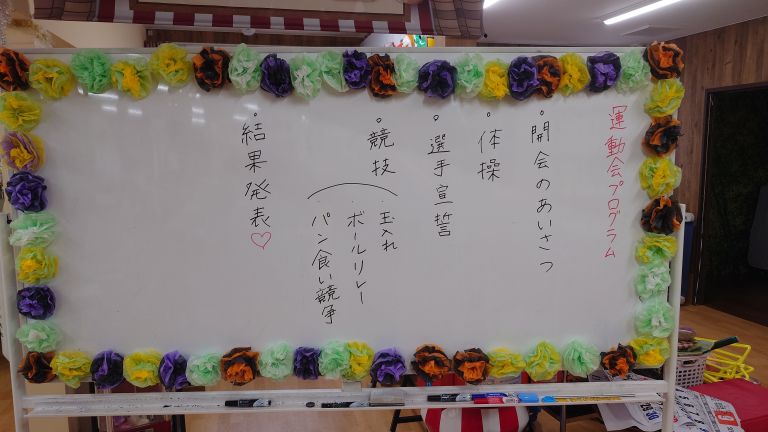 運動会プログラム
。開会のあいさつ
。体操
。選手宣誓
。競技
・玉入れ
・ボールリレー
・パン食い競争
。結果発表♡